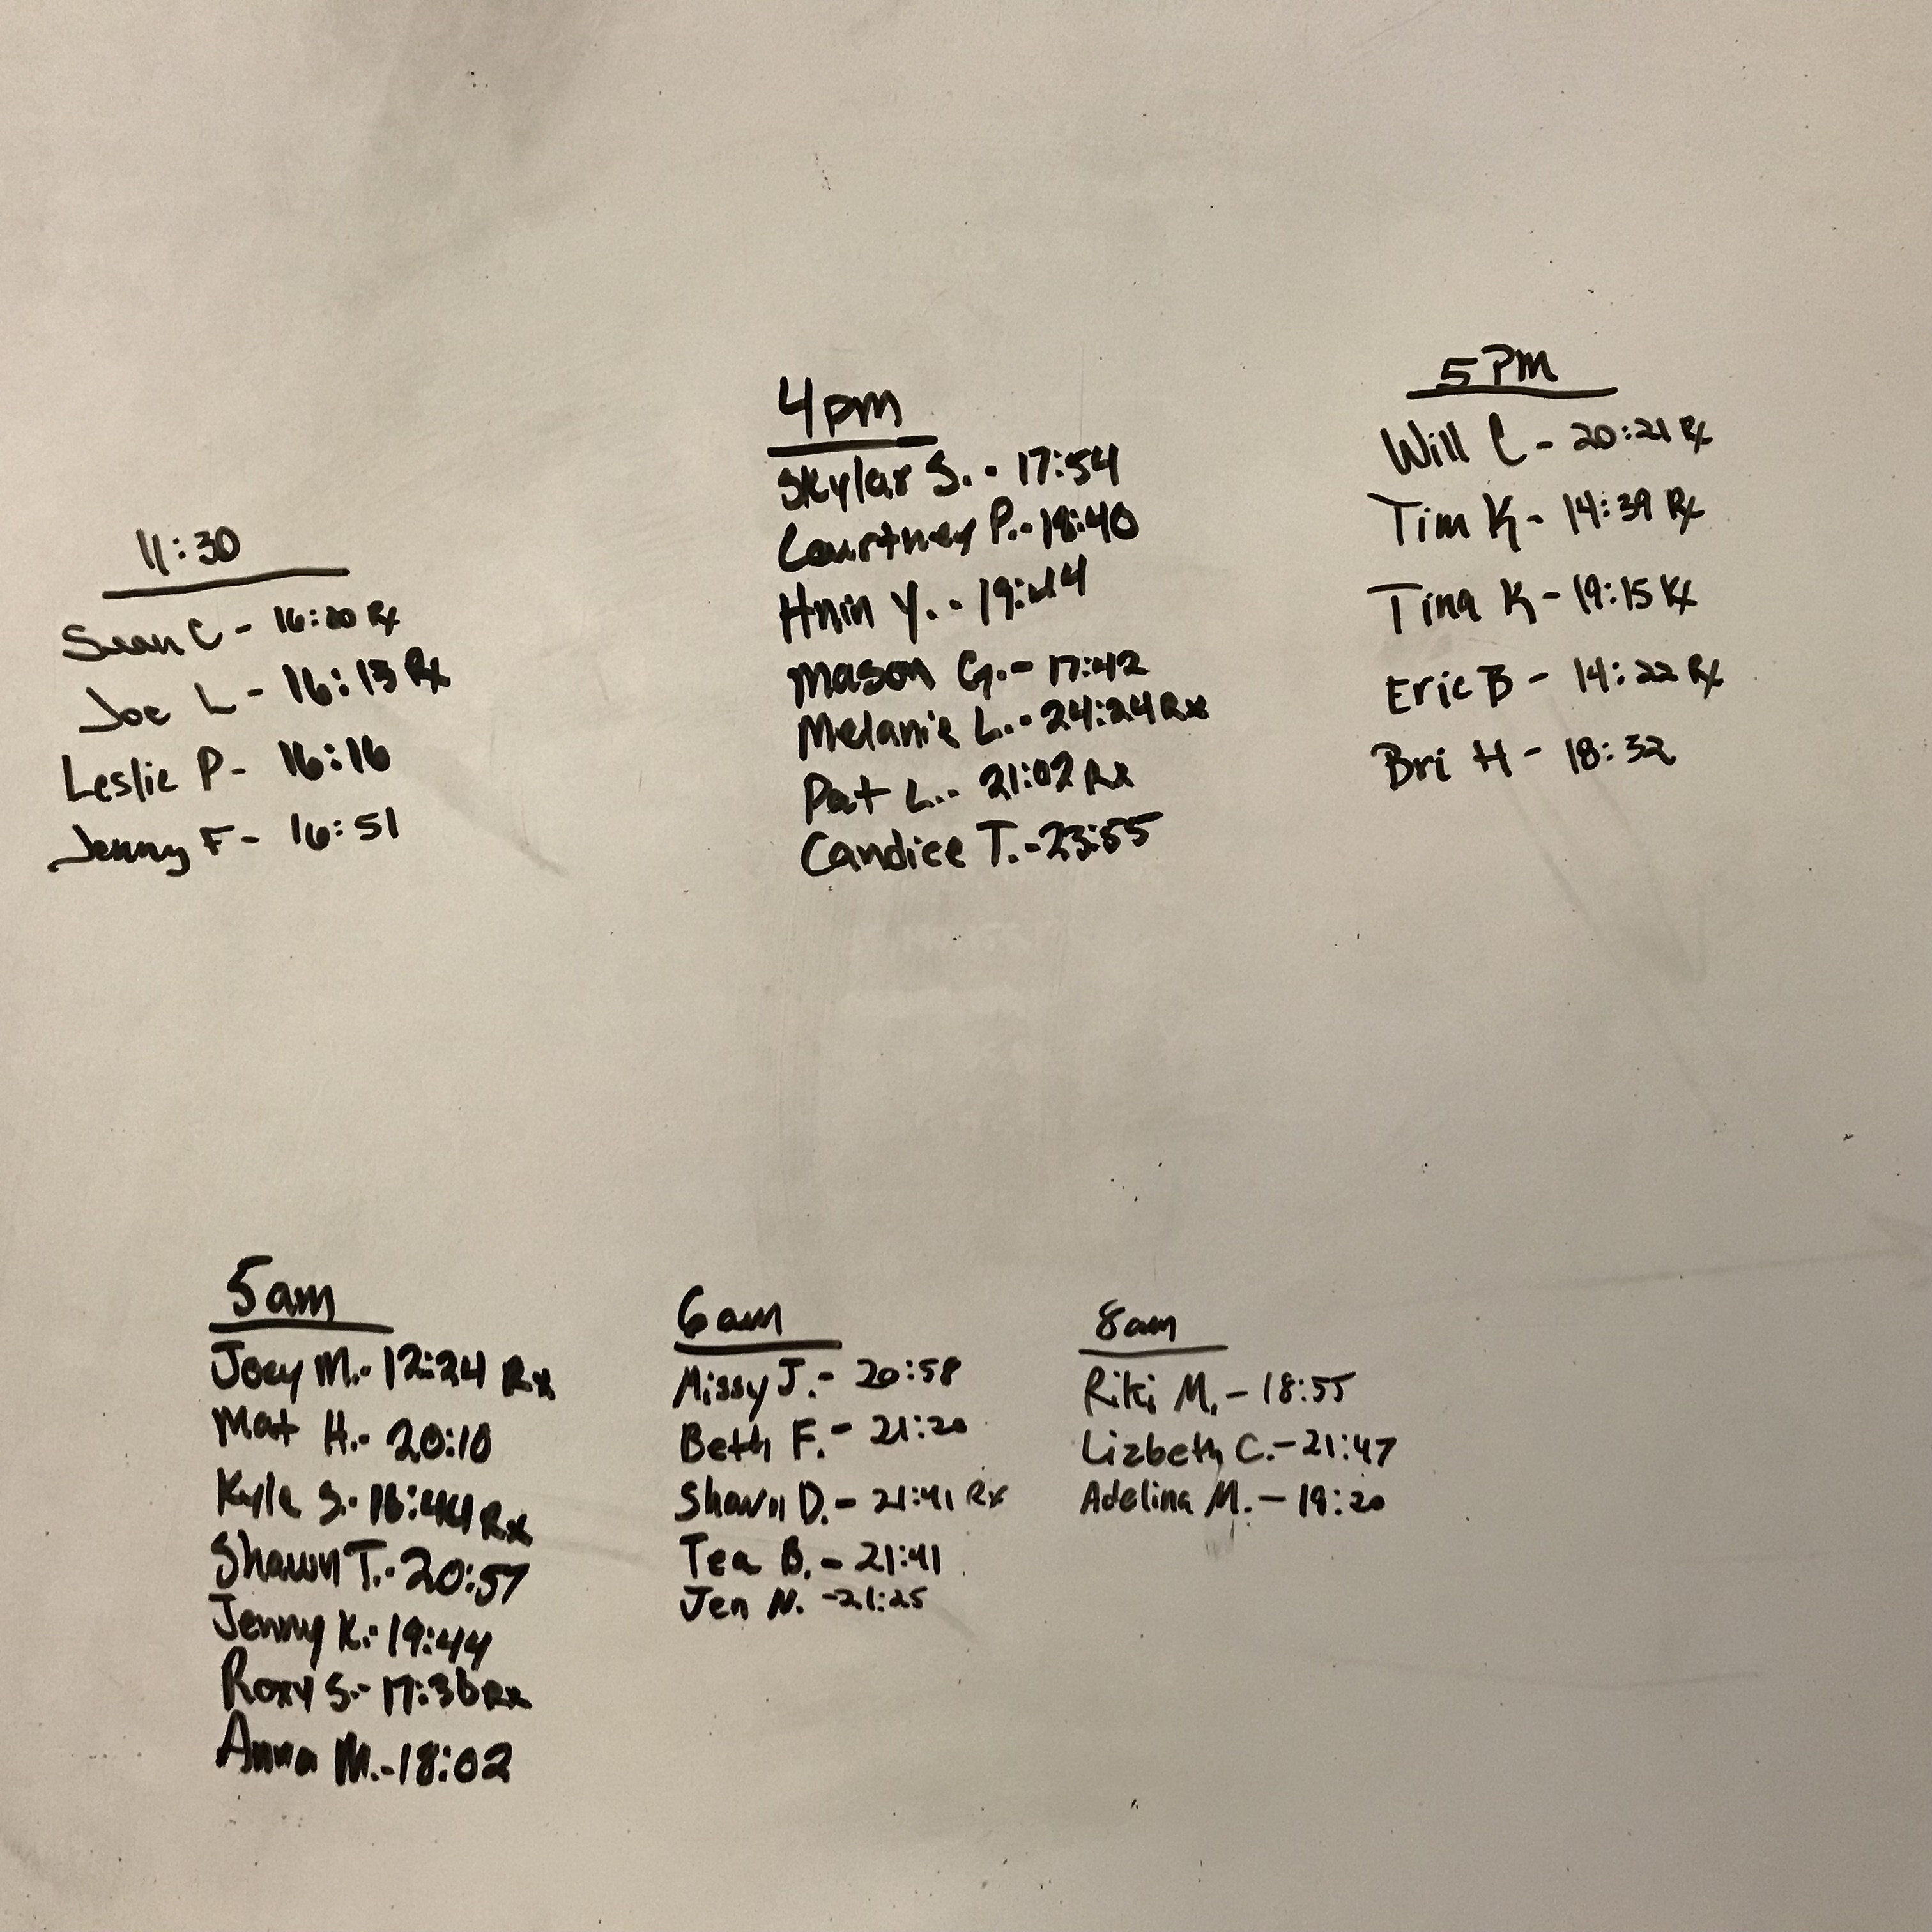 11:30
Sean C - 16:20 Rx
Joe L - 16:13 Rx
Leslie P - 16:16
Jenny F - 16:51
4pm
Skylar S. - 17:54
Courtney P. - 18:40
Hnin Y. -
Mason G. - 17:42
Melanie L. - 24:24 Rx
Pat L. - 21:02 Rx
Candice T. - 23:55
5 PM
Will C - 20:21 Rx
Tim K - 14:39 Rx
Tina K - 19:15 Rx
Eric B - 14:22 Rx
Bri H - 18:32
5am
Joey M. - 12:24 Rx
Mat H. - 20:10
Kyle S. - 16:44 Rx
Shawn T. - 20:57
Jenny K. - 19:44
Roxy S. - 17:36 Rx
Anna M. - 18:02
6am
Missy J. - 20:58
Beth F. - 21:20
Shawn D. - 21:41 Rx
Tea B. - 21:41
Jen N. - 21:25
8am
Riki M. - 18:55
Lizbeth C. - 21:47
Adelina M. - 19:20